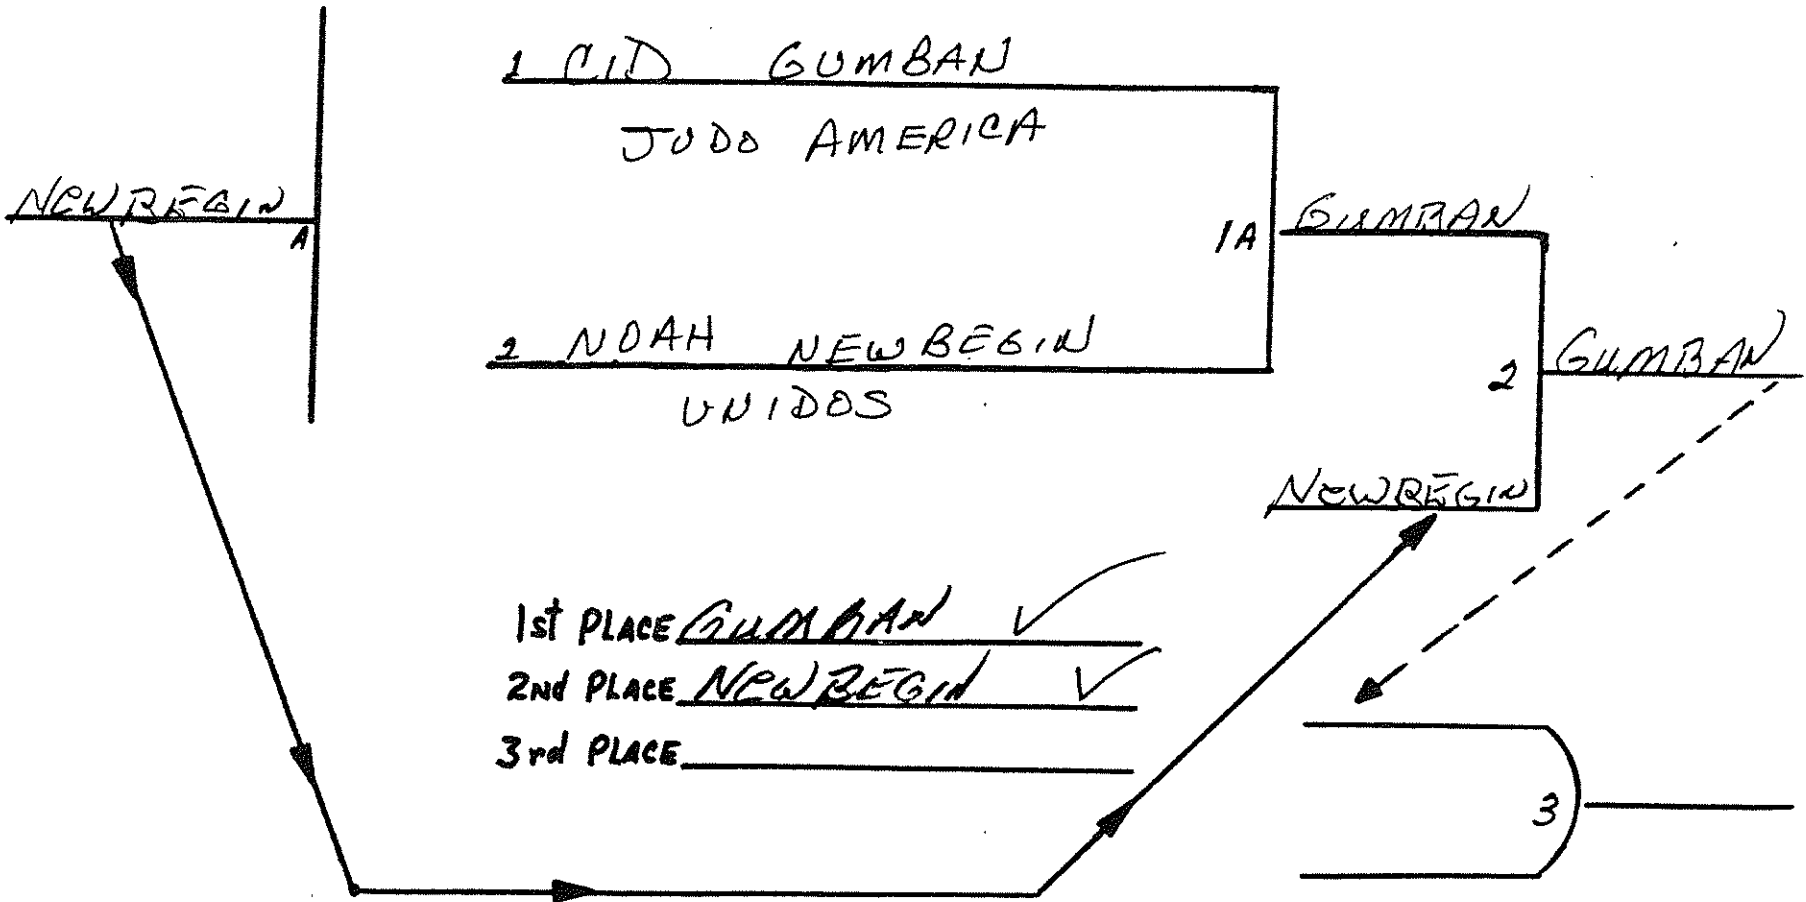 1 CID GUMBAN
JUDO AMERICA
NEWBEGIN
A
1A
GUMBAN
2 NOAH NEWBEGIN
UNIDOS
2
GUMBAN
NEWBEGIN
1st PLACE GUMBAN
2Nd PLACE NEWBEGIN
3rd PLACE
3